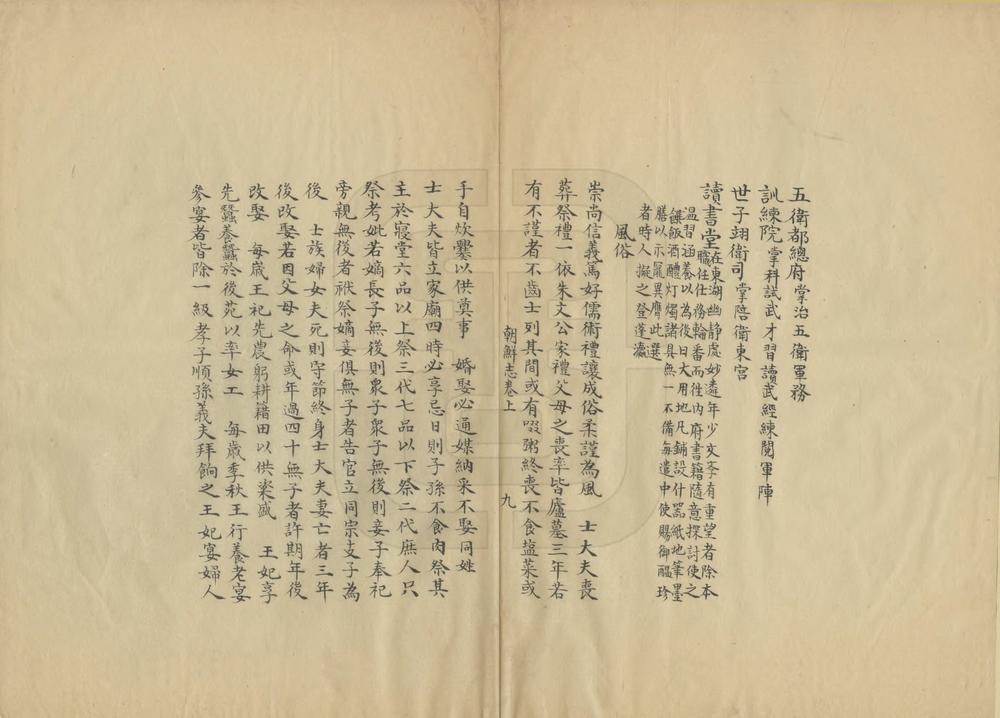 五衛都總府掌治五衛軍務
訓練院掌科試武才習讀武經練閱軍陣
世子翊衛司掌陪衛東宮
讀書堂在東湖幽静處妙遴年少文李有重望者除本
職任仕務輪番而徃内府書籍隨意探討使之
温習涵養以為後日大用地凡鋪設什噐紙地筆墨
饌飯酒醴灯燭諸具無一不備每遣中使賜御醖珍
膳以示寵異膺此選
者時人擬之登蓬瀛
風俗
崇尚信義篤好儒術禮讓成俗柔謹為風　士大夫喪
葬祭禮一依朱文公家禮父母之喪率皆廬墓三年若
有不謹者不齒士列其間或有啜粥終喪不食塩菜或
朝鮮志卷上　九
手自炊爨以供奠事　婚娶必通媒納采不娶同姓
士大夫皆立家廟四時必享忌日則子孫不食肉祭其
主於寢堂六品以上祭三代七品以下祭二代庶人只
祭考妣若嫡長子無後則衆子衆子無後則妾子奉祀
旁親無後者祔祭嫡妾俱無子者告官立同宗支子為
後　士族婦女夫死則守節終身士大夫妻亡者三年
後改娶若因父母之命或年過四十無子者許期年後
改娶　每歲王祀先農躬耕籍田以供粢盛　王妃享
先蠶養蠶於後苑以率女工　每歲季秋王行養老宴
參宴者皆除一級孝子順孫義夫拜餉之王妃宴婦人